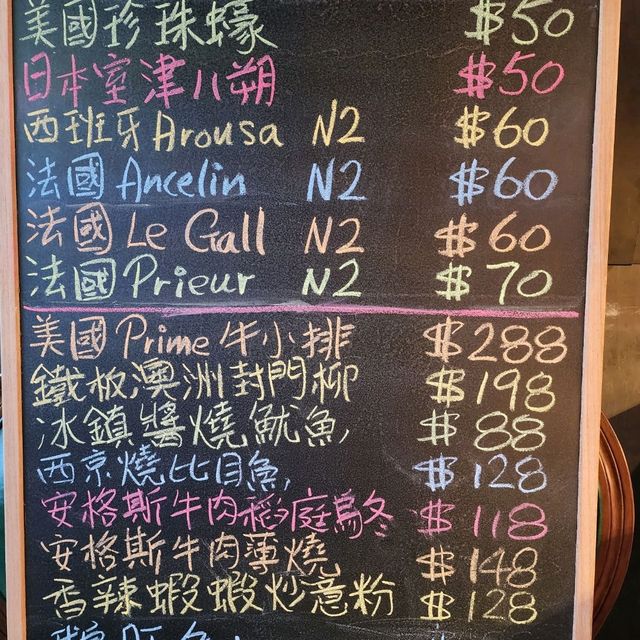 美國珍珠蠔 $50
日本室津八朔 $50
西班牙 Arousa N2 $60
法國 Ancelin N2 $60
法國 Le Gall N2 $60
法國 Prieur N2 $70
美國 Prime 牛小排 $288
鐵板澳洲封門柳 $198
冰鎮醬燒魷魚 $88
西京燒比目魚 $128
安格斯牛肉稻庭烏冬 $118
安格斯牛肉薄燒 $148
香辣蝦蝦炒意粉 $128